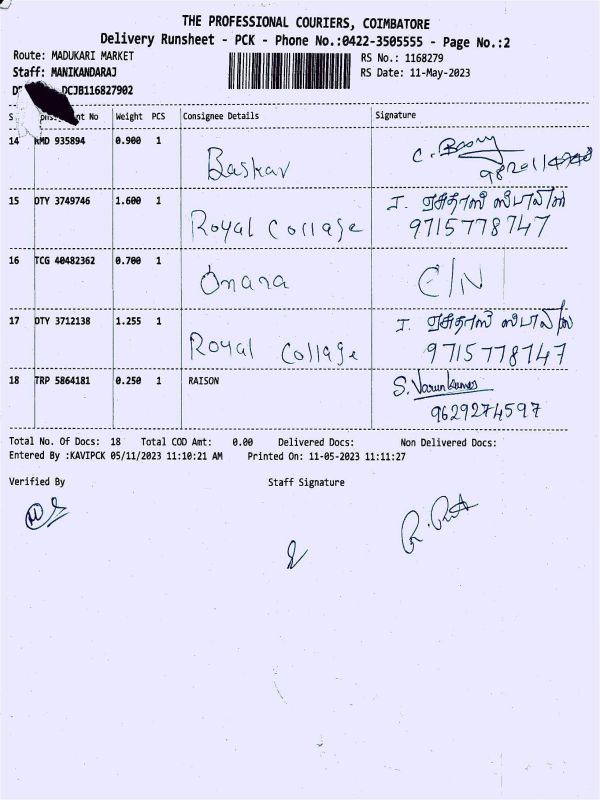 THE PROFESSIONAL COURIERS, COIMBATORE
Delivery Runsheet - PCK - Phone No.:0422-3505555 - Page No.:2
Route: MADUKARI MARKET
RS No.: 1168279
Staff: MANIKANDARAJ
RS Date: 11-May-2023
DCJB116827902
No Weight PCS Consignee Details Signature
14 KMD 935894 0.900 1 Baskar
15 DTY 3749746 1.600 1 Royal Collage J.
9715778747
16 TCG 40482362 0.700 1 Onana C/N
17 DTY 3712138 1.255 1 Royal Collage J.
9715778747
18 TRP 5864181 0.250 1 RAISON S. Varunkumar
9629274597
Total No. Of Docs: 18 Total COD Amt: 0.00 Delivered Docs: Non Delivered Docs:
Entered By :KAVIPCK 05/11/2023 11:10:21 AM Printed On: 11-05-2023 11:11:27
Verified By Staff Signature